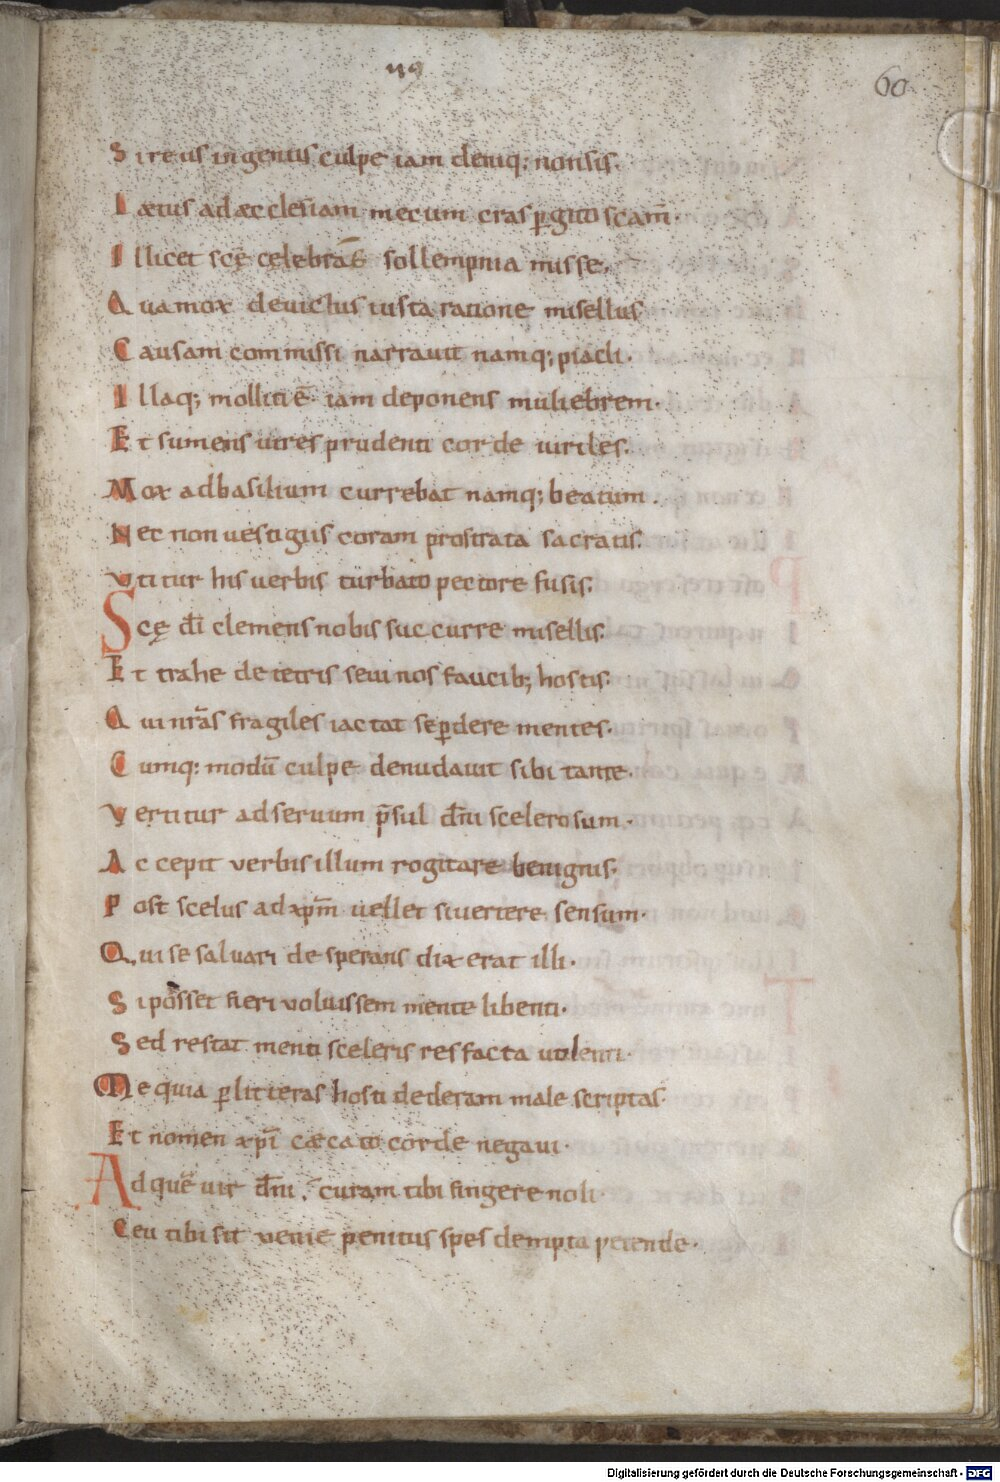 119
60
Si reus ingentis culpe iam deniq; non sis.
Lætus ad æcclesiam mecum cras ꝑgito scam̄.
Illicet scę celebrās sollempnia misse.
Qua mox devictus iusta ratione misellus
Causam commissi narravit namq; piacli.
Illaq; mollitiē iam deponens muliebrem.
Et sumens vires prudenti corde viriles.
Mox ad basilium currebat namq; beatum.
Nec non vestigiis coram prostrata sacratis.
Utitur his verbis turbato pectore fusis.
Scę dī clemens nobis succurre misellis.
Et trahe de tetris sevi nos faucib; hostis.
Qui nr̄as fragiles iactat se ꝑdere mentes.
Cumq; modū culpe denudavit sibi tante.
Vertitur ad servum p̄sul dn̄i scelerosum.
Accepit verbis illum rogitare benignis.
Post scelus ad xpm̄ vellet si vertere sensum.
Qui se salvari desperans dixerat illi.
Si posset fieri voluissem mente libenti.
Sed restat menti sceleris res facta volenti.
Me quia ꝑ litteras hosti dederam male scriptas
Et nomen xpī cæcato corde negavi.
Ad quē vir dn̄i, curam tibi fingere noli
Ceu tibi sit venie penitus spes dempta petende.
Digitalisierung gefördert durch die Deutsche Forschungsgemeinschaft - DFG